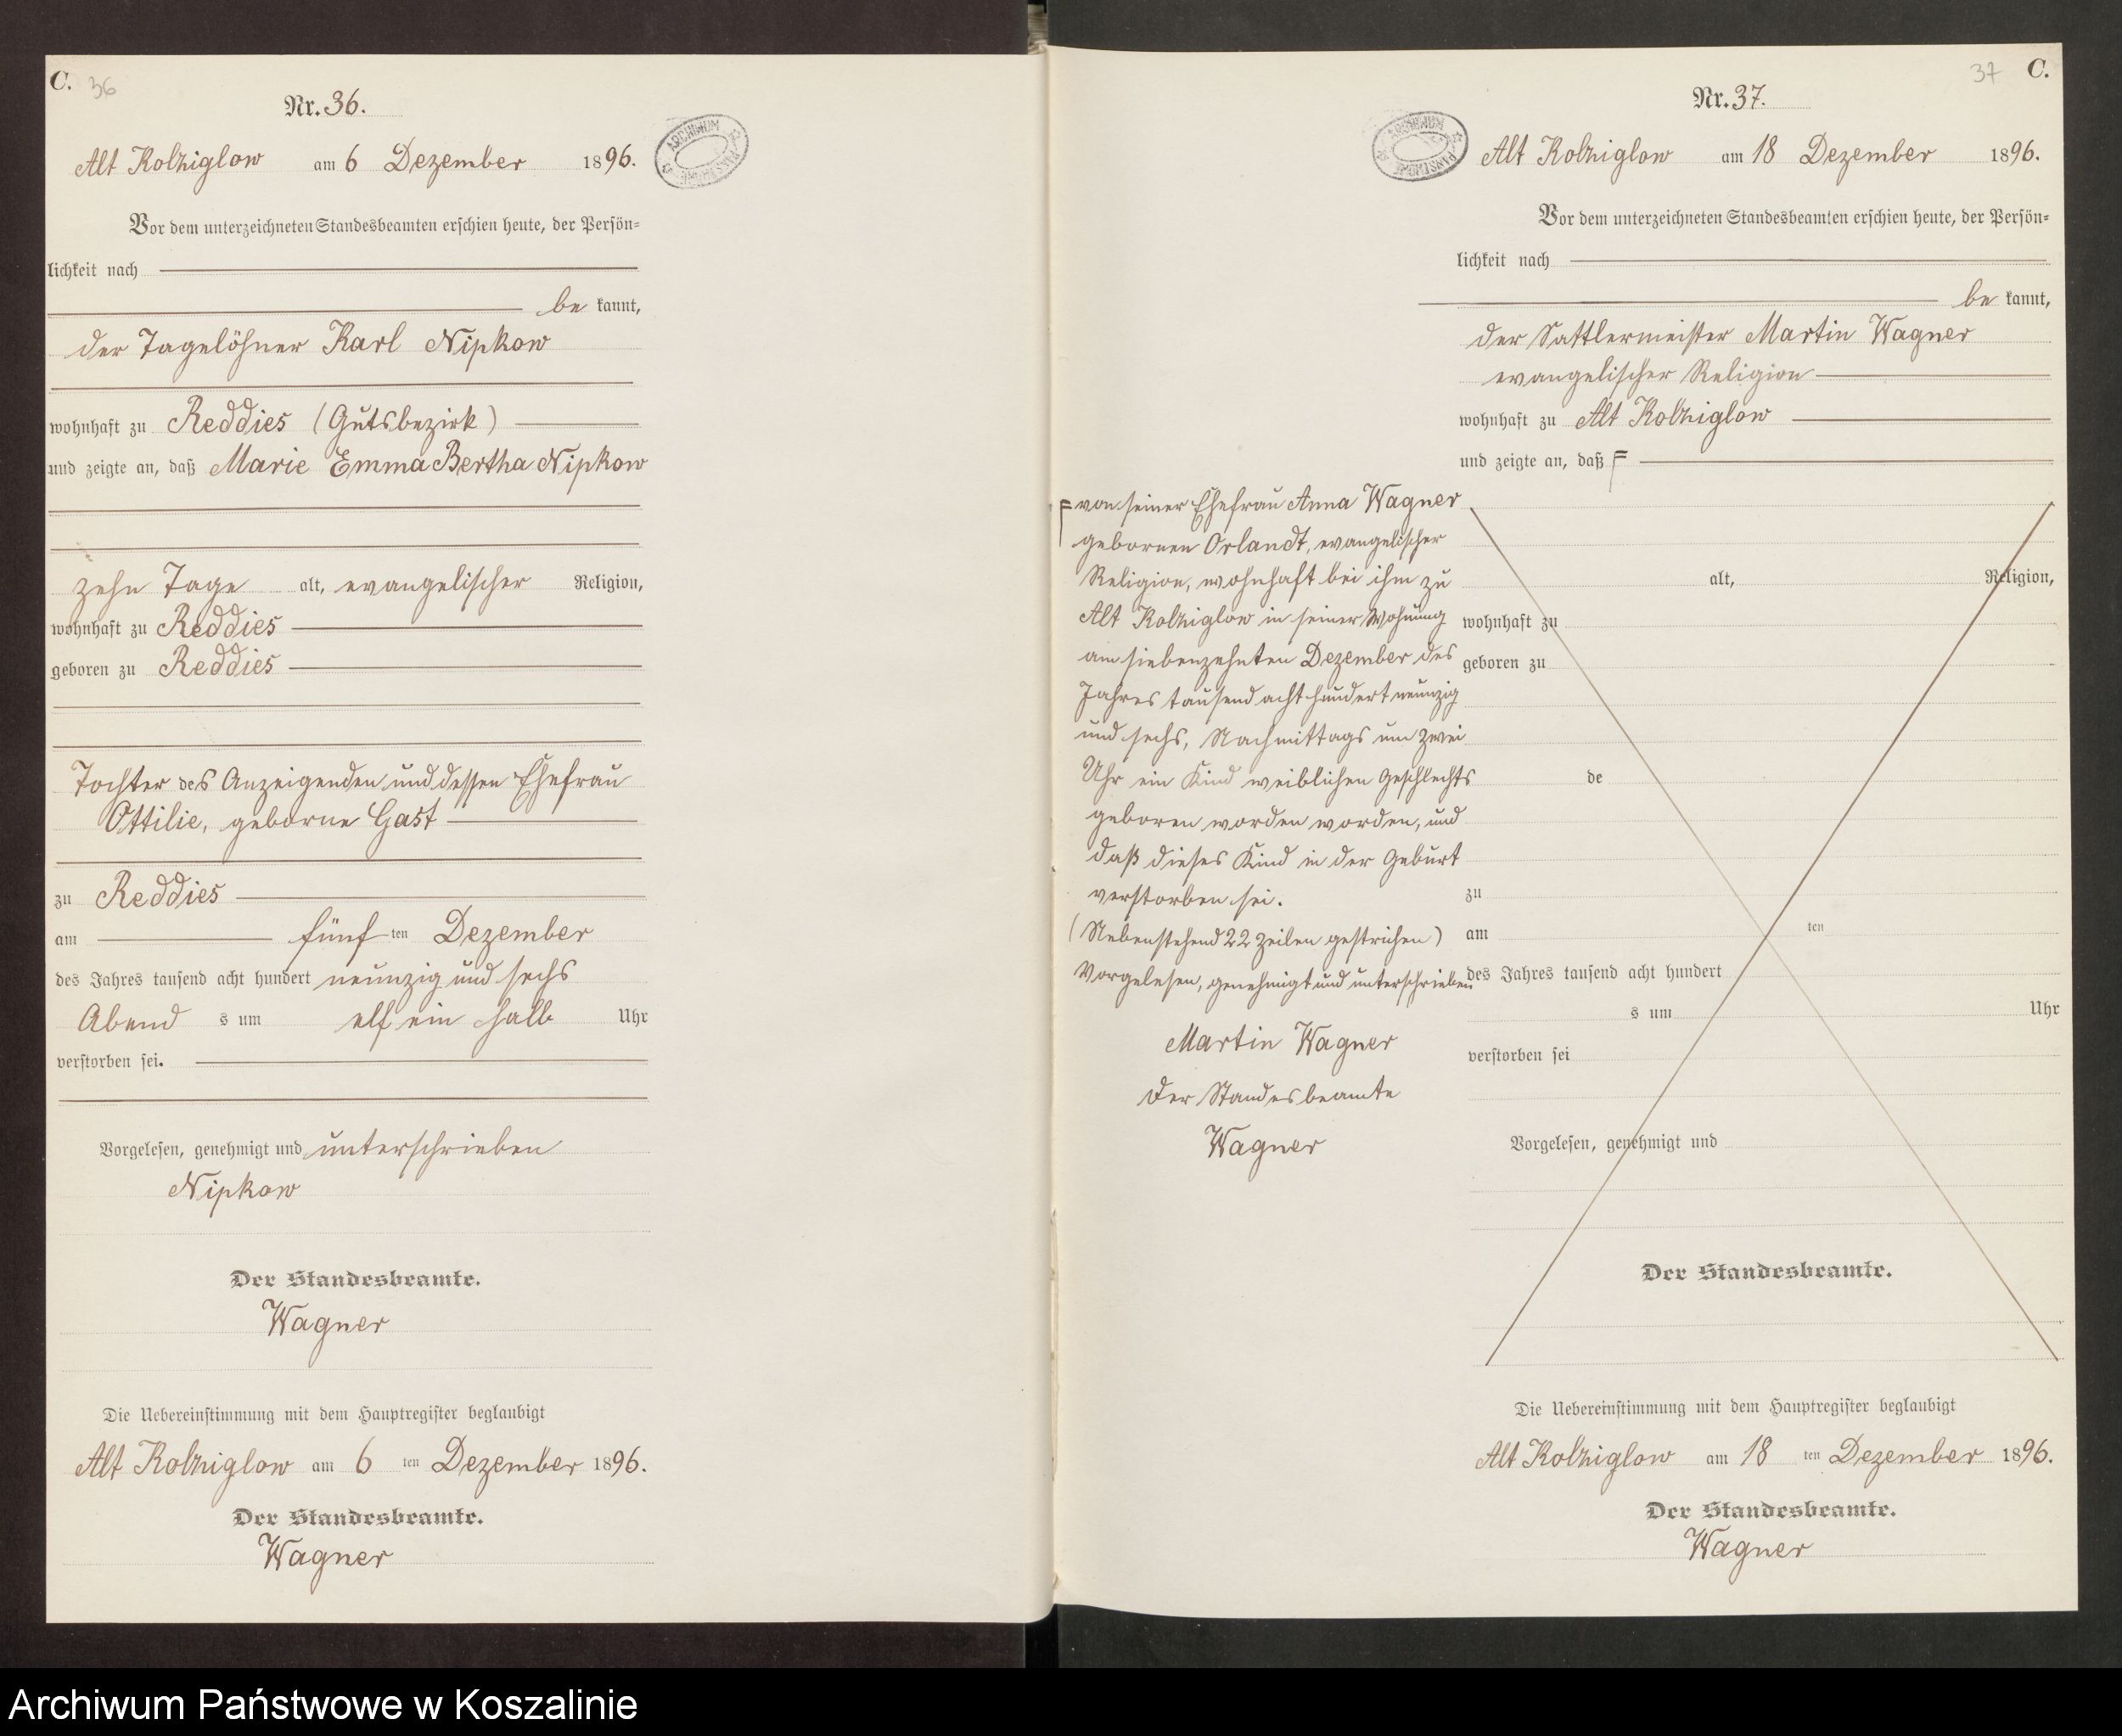 C. 36
Nr. 36.
Alt Kolziglow am 6 Dezember 1896.
ARCHIWUM
Vor dem unterzeichneten Standesbeamten erschien heute, der Persön-
lichkeit nach
be kannt,
der Tagelöhner Karl Nipkow
wohnhaft zu Reddies (Gutsbezirk)
und zeigte an, daß Marie Emma Bertha Nipkow
zehn Tage alt, evangelischer Religion,
wohnhaft zu Reddies
geboren zu Reddies
Tochter des Anzeigenden und dessen Ehefrau
Ottilie, geborne Gast
zu Reddies
am fünf ten Dezember
des Jahres tausend acht hundert neunzig und sechs
Abend s um elf ein halb Uhr
verstorben sei.
Vorgelesen, genehmigt und unterschrieben
Nipkow
Der Standesbeamte.
Wagner
Die Uebereinstimmung mit dem Hauptregister beglaubigt
Alt Kolziglow am 6 ten Dezember 1896.
Der Standesbeamte.
Wagner
37 C.
Nr. 37.
ARCHIWUM
Alt Kolziglow am 18 Dezember 1896.
Vor dem unterzeichneten Standesbeamten erschien heute, der Persön-
lichkeit nach
be kannt,
der Sattlermeister Martin Wagner
evangelischer Religion
wohnhaft zu Alt Kolziglow
und zeigte an, daß
von seiner Ehefrau Anna Wagner
gebornen Orlandt, evangelischer
Religion, wohnhaft bei ihm zu
Alt Kolziglow in seiner Wohnung
am siebenzehnten Dezember des
Jahres tausend acht hundert neunzig
und sechs, Nachmittags um zwei
Uhr ein Kind weiblichen Geschlechts
geboren worden worden, und
daß dieses Kind in der Geburt
verstorben sei.
(Nebenstehend 22 Zeilen gestrichen)
Vorgelesen, genehmigt und unterschrieben
Martin Wagner
Der Standesbeamte
Wagner
alt, Religion,
wohnhaft zu
geboren zu
de
zu
am ten
des Jahres tausend acht hundert
s um Uhr
verstorben sei
Vorgelesen, genehmigt und
Der Standesbeamte.
Die Uebereinstimmung mit dem Hauptregister beglaubigt
Alt Kolziglow am 18 ten Dezember 1896.
Der Standesbeamte.
Wagner
Archiwum Państwowe w Koszalinie